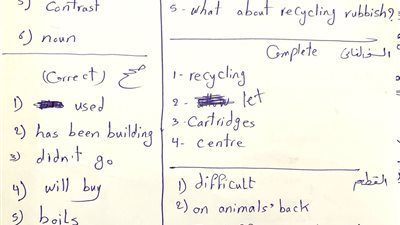 5) Contrast
6) noun
(Correct) صحح
1) used
2) has been building
3) didn't go
4) will buy
5) boils
5- what about recycling rubbish?
Complete
1- recycling
2- let
3- Cartridges
4- centre
القطع
1) difficult
2) on animals' back